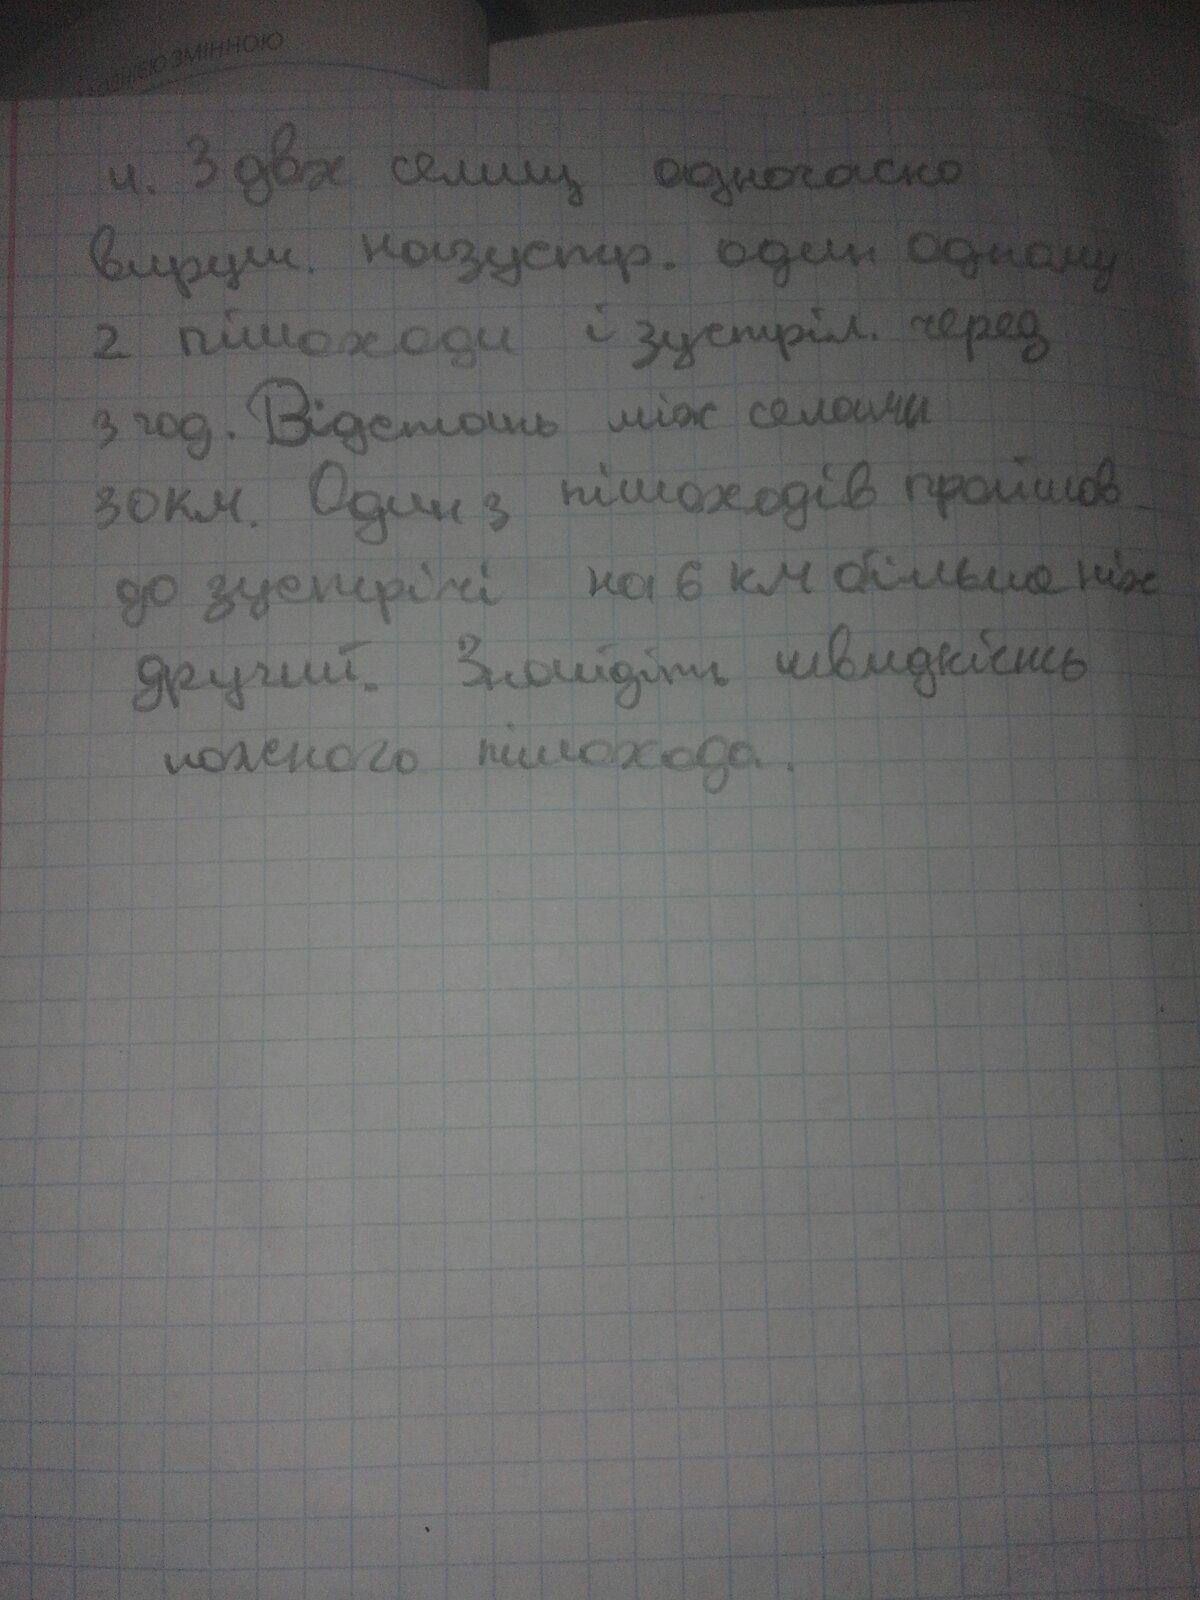 ОДНІЄЮ ЗМІННОЮ
4. З двх селищ одночасно
вируш. назустр. один одному
2 пішоходи і зустріл. через
3 год. Відстань між селами
30 км. Один з пішоходів пройшов
до зустрічі на 6 км більше ніж
другий. Знайдіть швидкість
кожного пішохода.